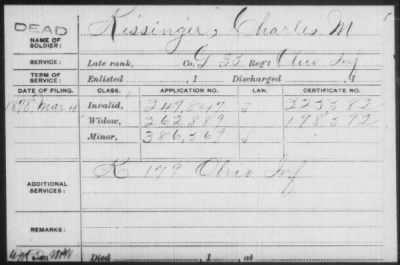 DEAD
NAME OF SOLDIER: Kissinger, Charles M
SERVICE: Late rank, Co. G 55 Reg't Ohio Inf
TERM OF SERVICE: Enlisted , 1 Discharged , 1
DATE OF FILING. CLASS. APPLICATION NO. LAW. CERTIFICATE NO.
1878 Mar 4 Invalid, 249,847 223382
Widow, 262,889 198,392
Minor, 386,369
ADDITIONAL SERVICES: K 179 Ohio Inf
REMARKS:
Died , 1 , at